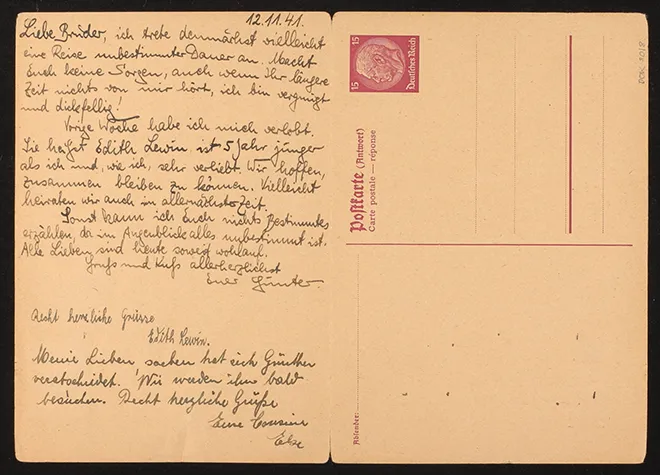 12.11.41.
Liebe Brüder, ich trete demnächst vielleicht
eine Reise unbestimmter Dauer an. Macht
Euch keine Sorgen, auch wenn Ihr längere
Zeit nichts von mir hört, ich bin vergnügt
und dickfellig!
Vorige Woche habe ich mich verlobt.
Sie heißt Edith Lewin ist 5 Jahr jünger
als ich und, wie ich, sehr verliebt. Wir hoffen,
zusammen bleiben zu können. Vielleicht
heiraten wir auch in allernächster Zeit.
Sonst kann ich Euch nichts Bestimmtes
erzählen, da im Augenblick alles unbestimmt ist.
Alle Lieben sind heute soweit wohlauf.
Gruß und Kuß allerherzlichst
Euer Günter.
Recht herzliche Grüsse
Edith Lewin.
Meine Lieben soeben hat sich Günther
verabschiedet. Wir werden ihn bald
besuchen. Recht herzliche Grüße
Eure Cousine
Else
15 15
Deutsches Reich
Postkarte (Antwort)
Carte postale — réponse
Absender: